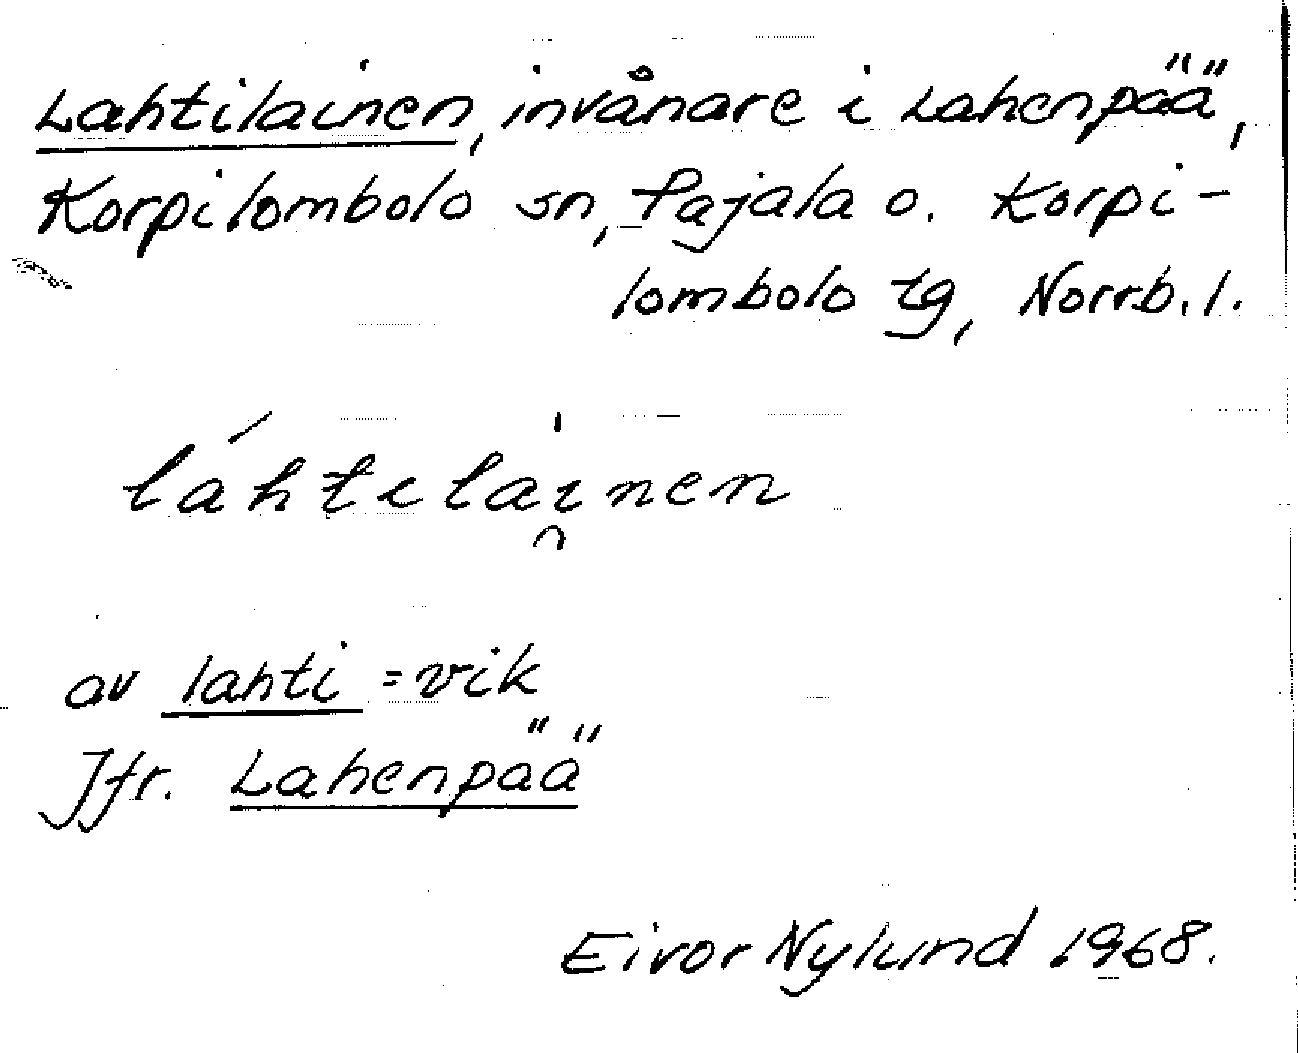 Lahtilainen, invånare i Lahenpää,
Korpilombolo sn, Pajala o. Korpi-
lombolo tg, Norrb. l.
láhtilài̯nen
av lahti = vik
Jfr. Lahenpää
Eivor Nylund 1968.